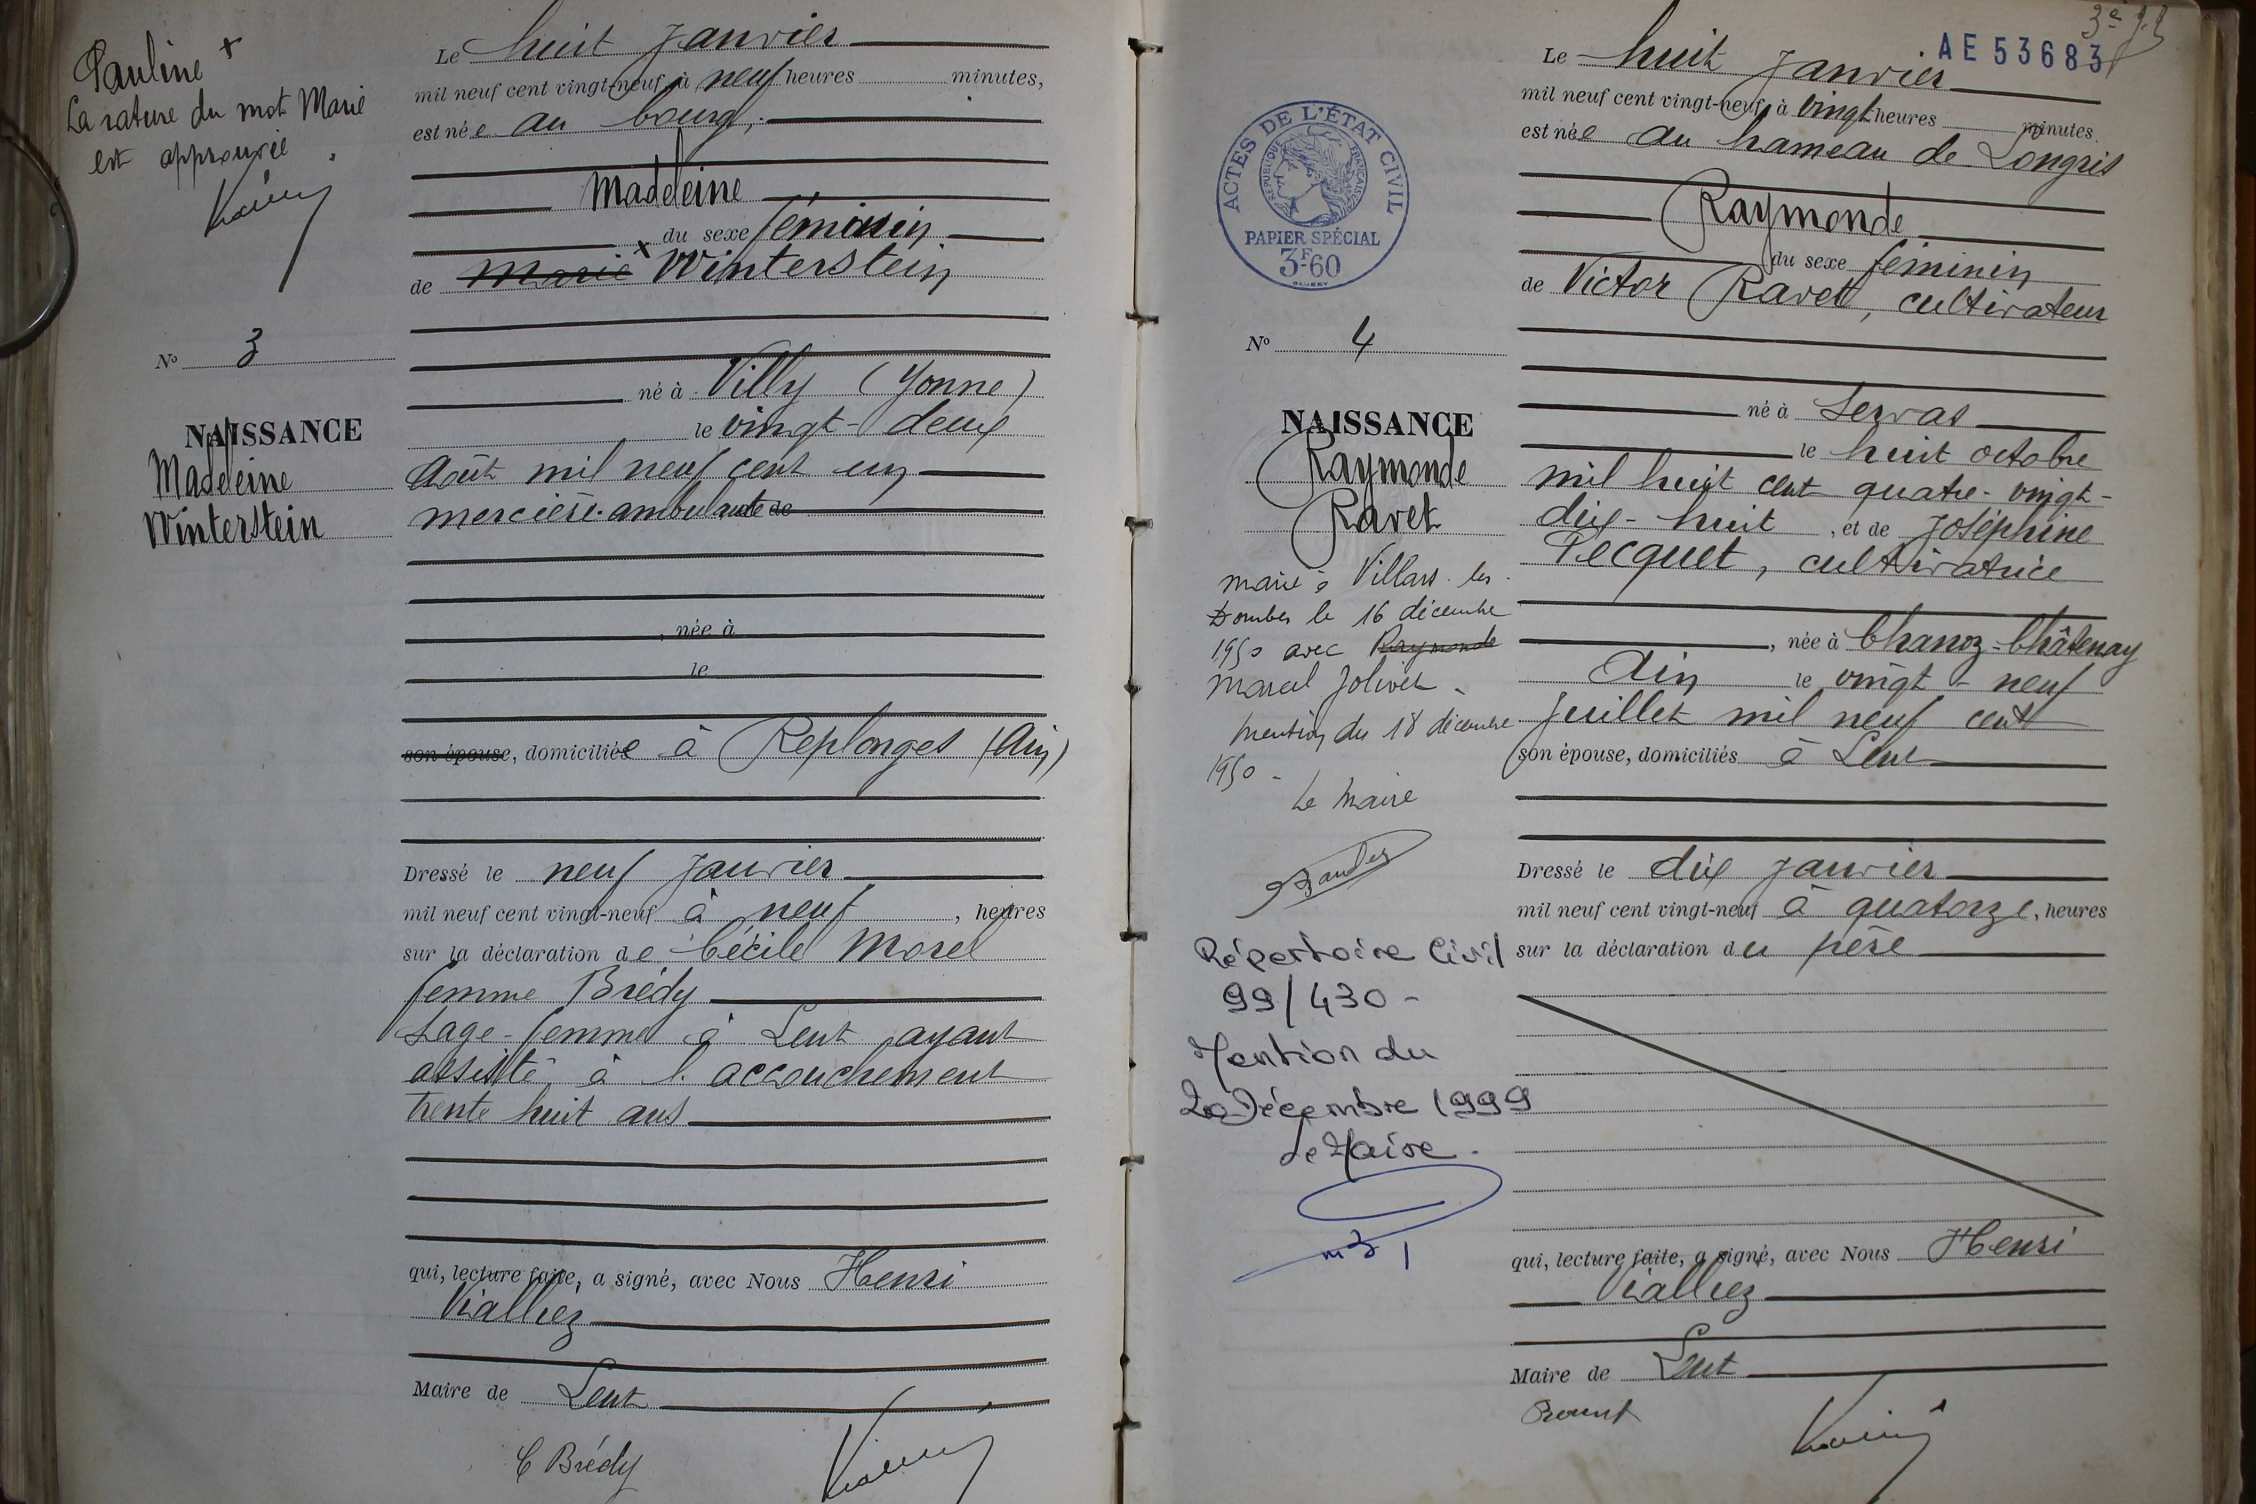 Pauline x
La rature du mot Marie
est approuvée
Le huit Janvier
mil neuf cent vingt-neuf à neuf heures minutes,
est née au bourg,
Madeleine
du sexe féminin
de Marie x Winterstein
né à Villy (Yonne)
le vingt-deux
Août mil neuf cent un
mercière ambulante de
, née à
le
son épouse, domiciliée à Replonges (Ain)
Dressé le neuf Janvier
mil neuf cent vingt-neuf à neuf , heures
sur la déclaration de Cécile Morel
femme Brédy
sage-femme à Lent ayant
assisté à l'accouchement
trente huit ans
qui, lecture faite, a signé, avec Nous Henri
Vialliez
Maire de Lent
C Brédy
No 3
NAISSANCE
Madeleine
Winterstein
AE 53683
ACTES DE L'ÉTAT CIVIL
RÉPUBLIQUE FRANÇAISE
PAPIER SPÉCIAL
3F60
No 4
NAISSANCE
Raymonde
Ravet
Marié à Villars-les-
Dombes le 16 décembre
1950 avec Raymonde
Marcel Jolivet
Mention du 18 décembre
1950 -
Le Maire
Répertoire Civil
99/430 -
Mention du
20 Décembre 1999
Le Maire.
Le huit Janvier
mil neuf cent vingt-neuf à vingt heures minutes
est née au hameau de Longris
Raymonde
du sexe féminin
de Victor Ravet, cultivateur
né à Servas
le huit octobre
mil huit cent quatre-vingt-
dix-huit , et de Joséphine
Pecquet, cultivatrice
, née à Chanoz-Châtenay
Ain le vingt-neuf
Juillet mil neuf cent
son épouse, domiciliés à Lent
Dressé le dix Janvier
mil neuf cent vingt-neuf à quatorze, heures
sur la déclaration du père
qui, lecture faite, a signé, avec Nous Henri
Vialliez
Maire de Lent